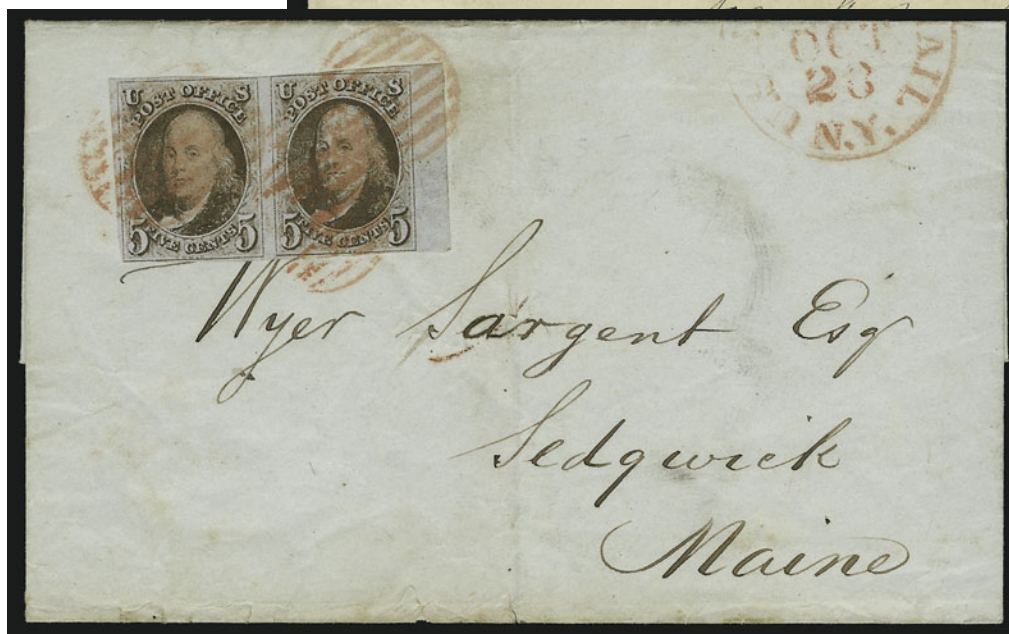 U S
POST OFFICE
5 FIVE CENTS 5
U S
POST OFFICE
5 FIVE CENTS 5
OCT
28
N.Y.
AIL
Wyer Sargent Esq
Sedgwick
Maine